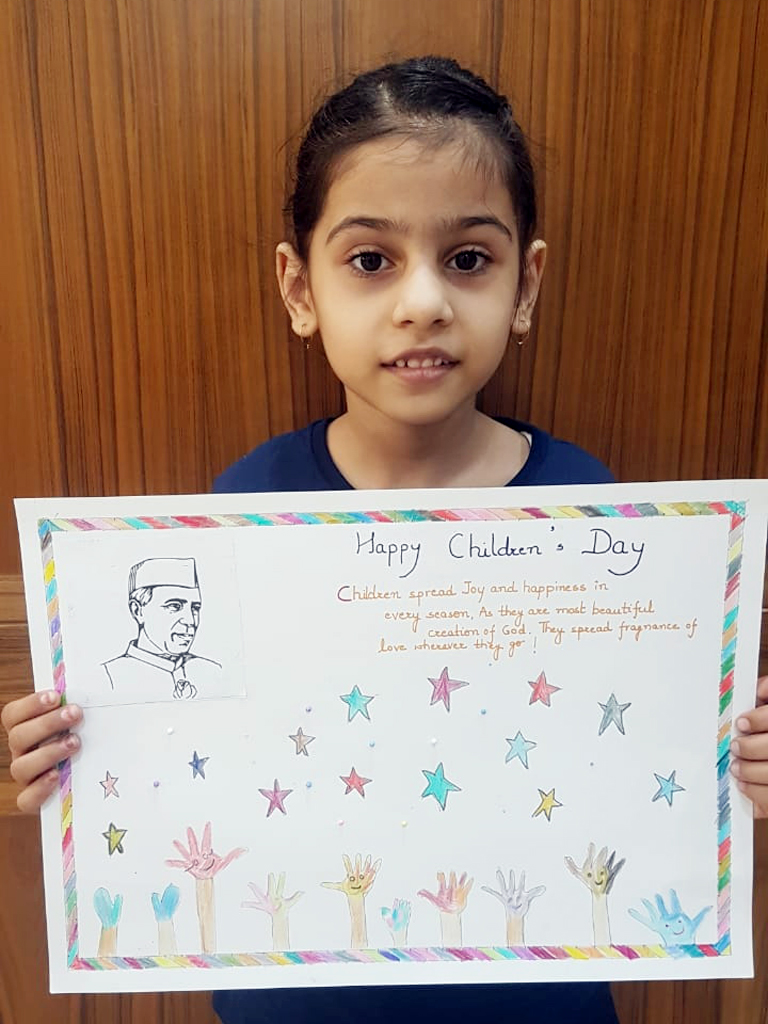 Happy Children's Day
Children spread Joy and happiness in
every season, As they are most beautiful
creation of God. They spread fragnance of
love wherever they go !